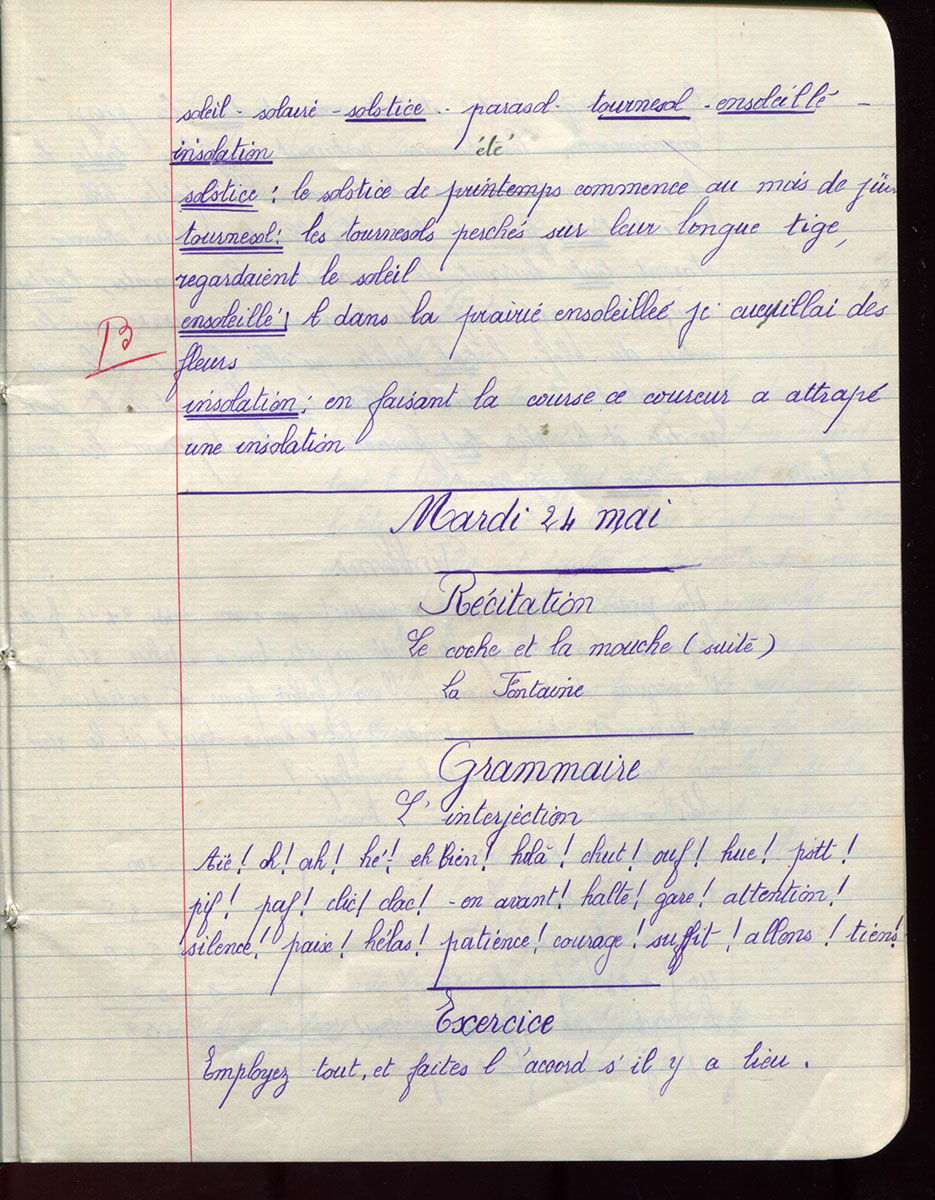 soleil - solaire - solstice - parasol - tournesol - ensoleillé -
insolation
été
solstice : le solstice de printemps commence au mois de juin
tournesol : les tournesols perchés sur leur longue tige,
regardaient le soleil
ensoleillé : dans la prairie ensoleillée je cueillai des
B
fleurs
insolation : en faisant la course ce coureur a attrapé
une insolation
Mardi 24 mai
Récitation
Le coche et la mouche (suite)
La Fontaine
Grammaire
L'interjection
Aïe ! oh ! ah ! hé ! eh bien ! holà ! chut ! ouf ! hue ! pstt !
pif ! paf ! clic ! clac ! - en avant ! halte ! gare ! attention !
silence ! paix ! hélas ! patience ! courage ! suffit ! allons ! tiens !
Exercice
Employez tout, et faites l'accord s'il y a lieu.